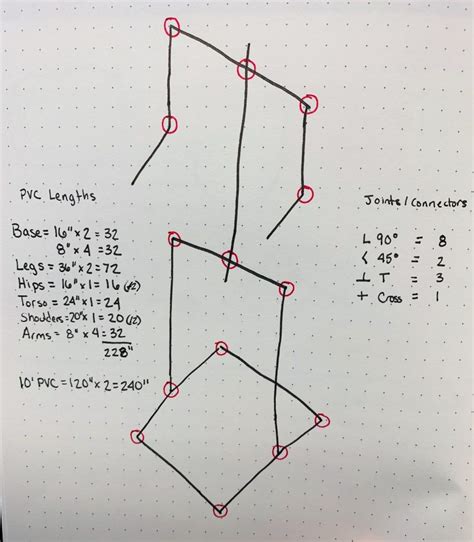 PVC Lengths
Base = 16" x 2 = 32
8" x 4 = 32
Legs = 36" x 2 = 72
Hips = 16" x 1 = 16 (/2)
Torso = 24" x 1 = 24
Shoulders = 20" x 1 = 20 (/2)
Arms = 8" x 4 = 32
228"
10' PVC = 120" x 2 = 240"
Joints / Connectors
L 90° = 8
< 45° = 2
⊥ T = 3
+ Cross = 1